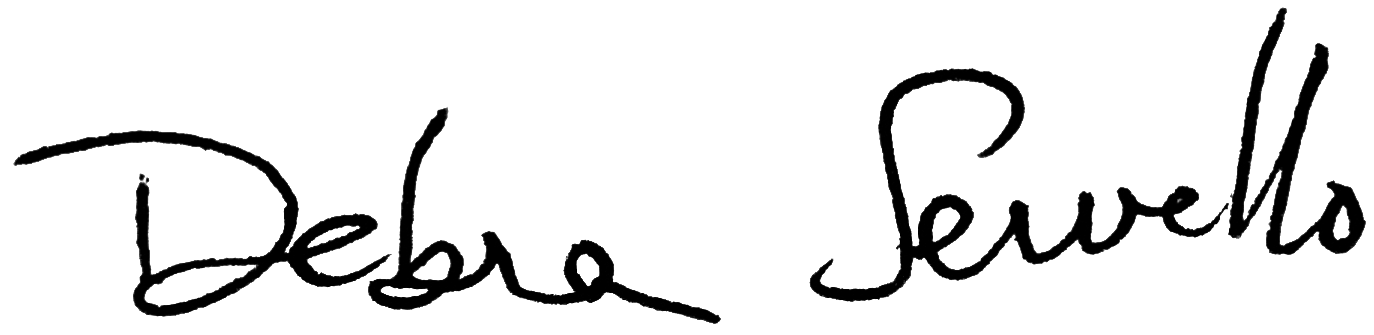 Debra Servello